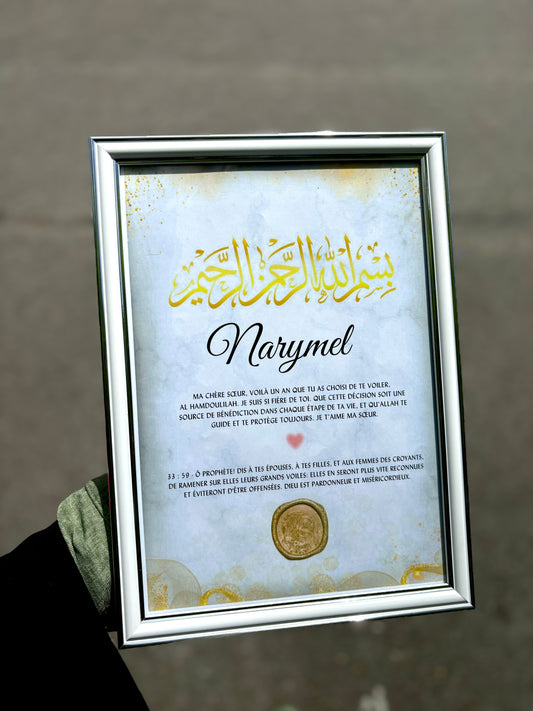 بِسْمِ اللهِ الرَّحْمَنِ الرَّحِيمِ
Narymel
MA CHÈRE SŒUR, VOILÀ UN AN QUE TU AS CHOISI DE TE VOILER,
AL HAMDOULILAH. JE SUIS SI FIÈRE DE TOI. QUE CETTE DÉCISION SOIT UNE
SOURCE DE BÉNÉDICTION DANS CHAQUE ÉTAPE DE TA VIE, ET QU'ALLAH TE
GUIDE ET TE PROTÈGE TOUJOURS. JE T'AIME MA SŒUR.
33 : 59 - Ô PROPHÈTE! DIS À TES ÉPOUSES, À TES FILLES, ET AUX FEMMES DES CROYANTS,
DE RAMENER SUR ELLES LEURS GRANDS VOILES: ELLES EN SERONT PLUS VITE RECONNUES
ET ÉVITERONT D'ÊTRE OFFENSÉES. DIEU EST PARDONNEUR ET MISÉRICORDIEUX.